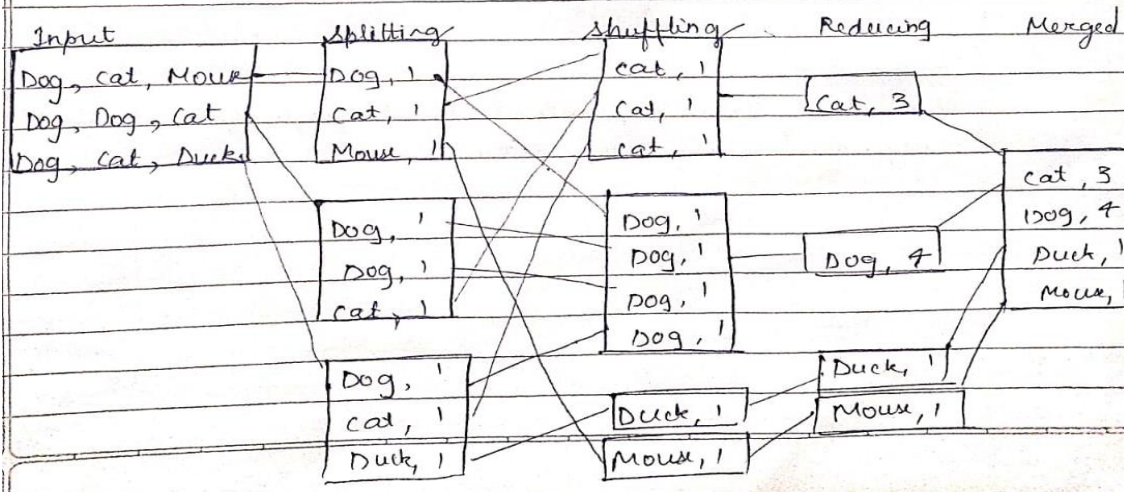 Input
Dog, Cat, Mouse
Dog, Dog, Cat
Dog, Cat, Duck
Splitting
Dog, 1
Cat, 1
Mouse, 1
Dog, 1
Dog, 1
Cat, 1
Dog, 1
Cat, 1
Duck, 1
Shuffling
Cat, 1
Cat, 1
Cat, 1
Dog, 1
Dog, 1
Dog, 1
Dog, 1
Duck, 1
Mouse, 1
Reducing
Cat, 3
Dog, 4
Duck, 1
Mouse, 1
Merged
Cat, 3
Dog, 4
Duck, 1
Mouse, 1